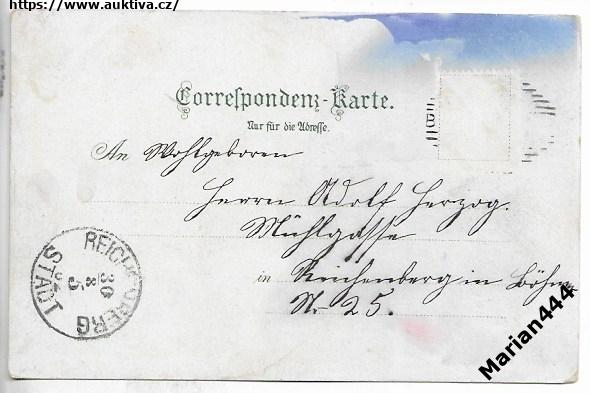 https://www.auktiva.cz/
Correspondenz-Karte.
Nur für die Adresse.
An Wohlgeboren
Herrn Adolf Herzog.
Mühlgasse
in Reichenberg in Böhm
Nr 25.
REICHENBERG
STADT
30
8
5
Marian444